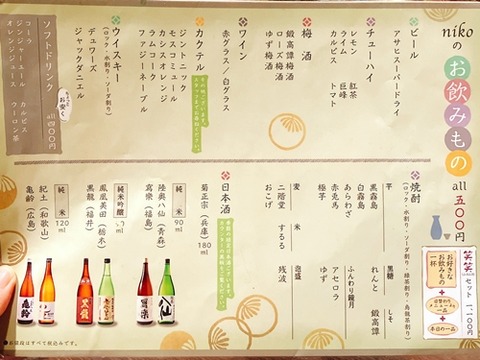 nikoの
お飲みもの
all 五〇〇円
笑笑セット 1100円
お好きな
お飲みもの
一杯
本日の一品
ビール
アサヒスーパードライ
チューハイ
レモン 紅茶
ライム 巨峰
カルピス トマト
梅酒
鍛高譚梅酒
ロード梅酒
ゆず梅酒
ワイン
赤グラス／白グラス
カクテル
ジントニック
モスコミュール
カシスオレンジ
ラムコーク
ファジーネーブル
ウイスキー
（ロック・水割り・ソーダ割り）
デュワーズ
ジャックダニエル
ソフトドリンク
all 四〇〇円
コーラ
ジンジャエール カルピス
オレンジジュース ウーロン茶
焼酎
（ロック・水割り・ソーダ割り・緑茶割り・烏龍茶割り）
芋
黒霧島
白霧島
あらわざ
赤兎馬
極芋
麦
二階堂
おこげ
米
するる
黒糖
れんと
しそ
鍛高譚
ふんわり鏡月
アセロラ
ゆず
泡盛
残波
日本酒
菊正宗（兵庫） 180ml
純米 90ml
陸奥八仙（青森）
寫楽（福島）
純米吟醸
鳳凰美田（栃木）
黒龍（福井）
純米 120ml
紀土（和歌山）
亀齢（広島）
※お値段はすべて税込みです。